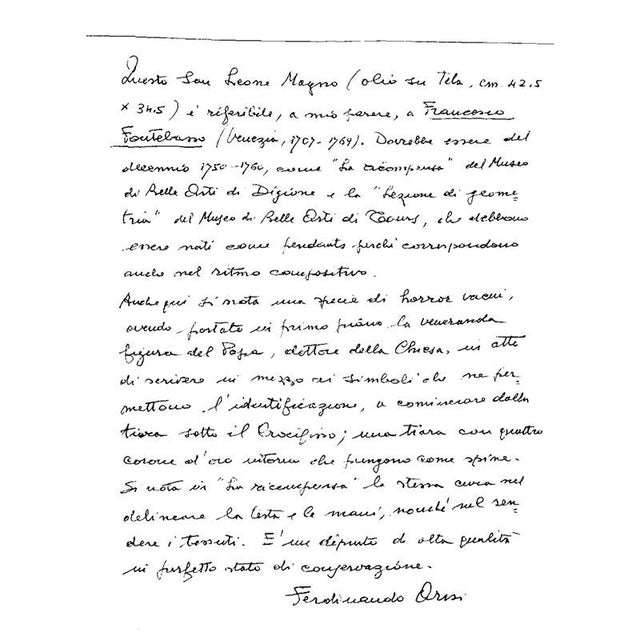 Questo San Leone Magno (olio su tela, cm 42.5
× 34.5) è riferibile, a mio parere, a Francesco
Fontebasso (Venezia, 1707-1769). Dovrebbe essere del
decennio 1750-1760, come "La ricompensa" del Museo
di Belle Arti di Digione e la "Lezione di geome-
tria" del Museo di Belle Arti di Tours, che debbono
essere nati come pendants perché corrispondono
anche nel ritmo compositivo.
Anche qui si nota una specie di horror vacui,
avendo portato in primo piano la veneranda
figura del Papa, dottore della Chiesa, in atto
di scrivere in mezzo ai simboli che ne per-
mettono l'identificazione, a cominciare dalla
tiara sotto il Crocifisso; una tiara con quattro
corone d'oro intorno che pungono come spine.
Si nota in "La ricompensa" la stessa cura nel
delineare la testa e le mani, nonché nel ren-
dere i tessuti. E' un dipinto di alta qualità
in perfetto stato di conservazione.
Ferdinando Arisi